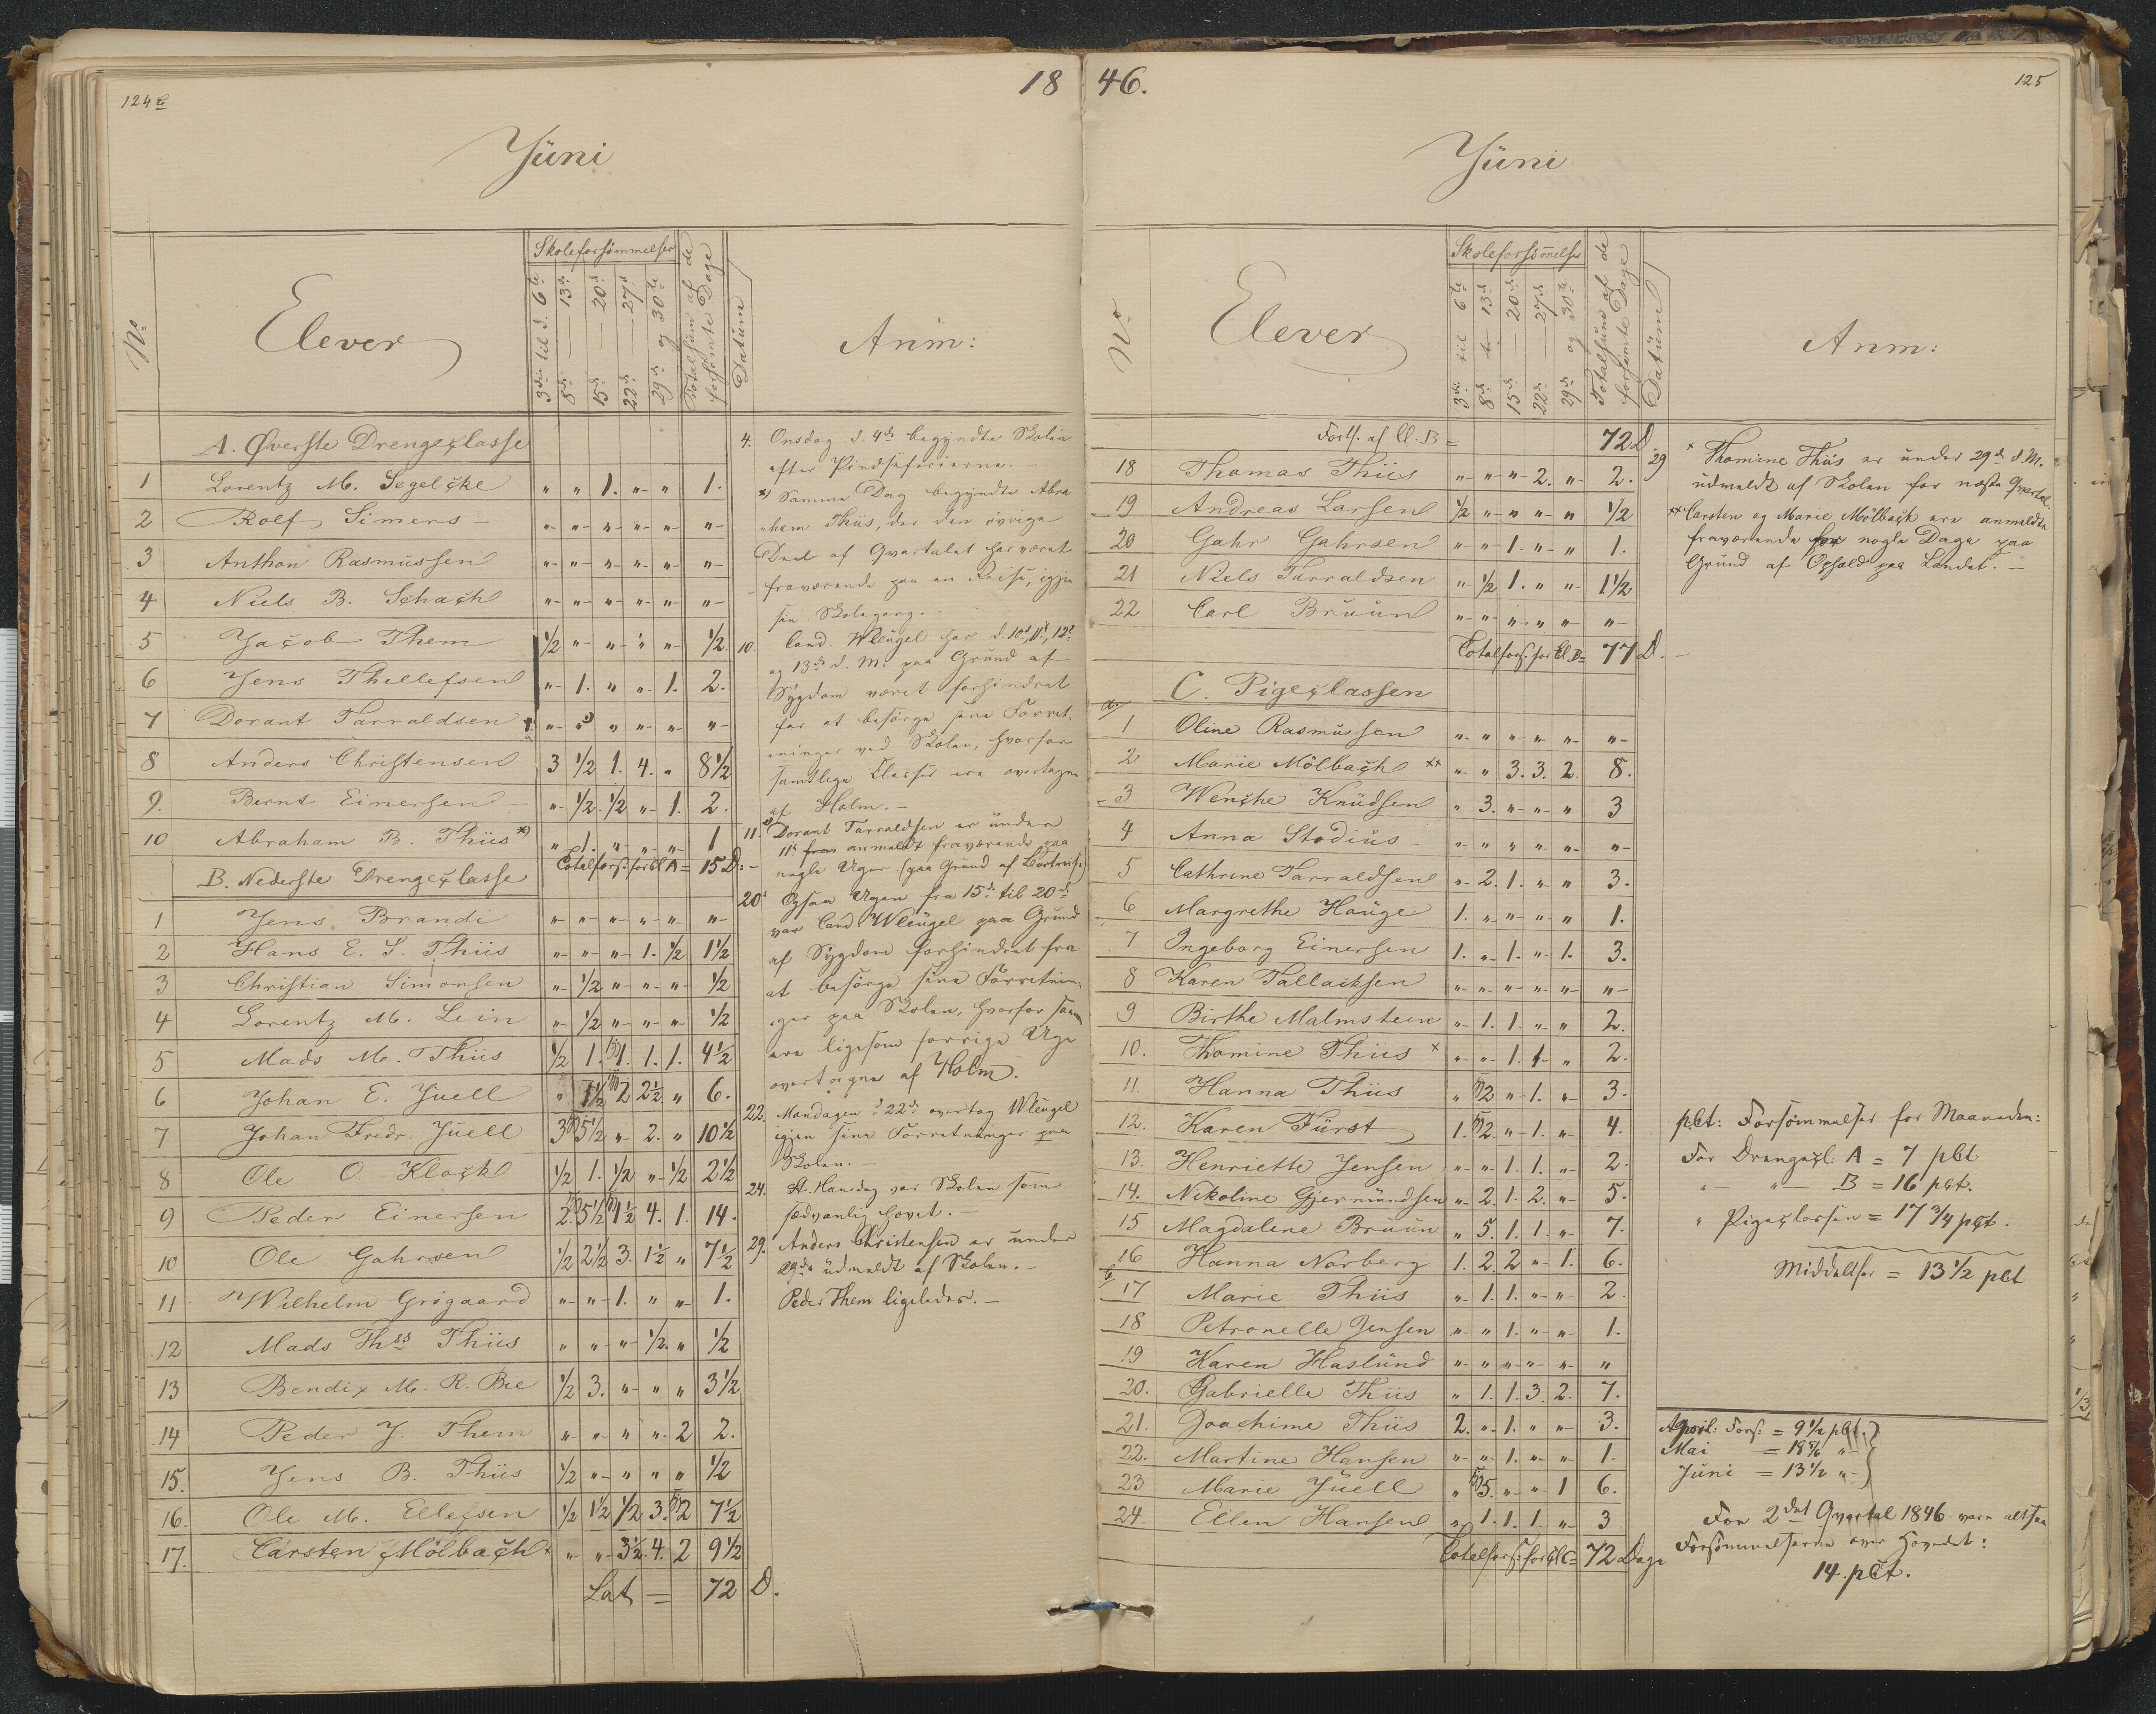 124
18
Jüni
No
Elever
Skoleforsömmelser
3die til d. 6te
8de — 13de
15de — 20de
22de — 27de
29de og 30te
Totalsum af de
forsömte Dage
Datum
Anm:
A. Øverste Drengeclasse
1 Lorentz M. Segelcke " " 1. " " 1.
2 Rolf Simers " " " " " "
3 Anthon Rasmussen " " " " " "
4 Niels B. Schach " " " " " "
5 Jacob Them 1/2 " " " " 1/2.
6 Jens Thellefsen " 1. " " 1. 2.
7 Dorant Tarraldsen " " " " " "
8 Anders Christensen 3 1/2 1. 4. " 8 1/2
9. Bernt Einersen " 1/2. 1/2 " 1. 2.
10 Abraham B. Thiis *) " 1. " " " 1
Totalfors: for Cl A = 15 D:
B. Nederste Drengeclasse
1 Jens Brandi " " " " " "
2 Hans E. S. Thiis " " " 1. 1/2 1 1/2
3 Christian Simonsen " 1/2 " " " 1/2
4 Lorentz M. Lein " 1/2 " " " 1/2
5 Mads M. Thiis 1/2 1. 1. 1. 1. 4 1/2
6 Johan E. Juell " 1 1/2 2 2 1/2 " 6.
7 Johan Fredr. Juell 3 5 1/2 " 2. " 10 1/2
8 Ole O. Klock 1/2 1. 1/2 " 1/2 2 1/2
9 Peder Einersen 2. 5 1/2 1 1/2 4. 1. 14.
10 Ole Gahrsen 1/2 2 1/2 3. 1 1/2 " 7 1/2
11 Wilhelm Grögaard " " 1. " " 1.
12 Mads Thss Thiis " " " 1/2. " 1/2
13 Bendix M. R. Bie 1/2 3. " " " 3 1/2
14 Peder J. Them " " " " 2 2.
15. Jens B. Thiis 1/2 " " " " 1/2
16. Ole M. Ellefsen 1/2 1 1/2 1/2 3. 2 7 1/2
17. Carsten Mölbach x " " 3 1/2. 4. 2 9 1/2
Lat = 72 D.
4. Onsdag d. 4de begyndte Skolen
efter Pindseferierne.
*) Samme Dag begyndte Abra
ham Thiis, der den övrige
Deel af Qvartalet har været
fraværende paa en Reise, igjen
sin Skolegang.
10 Cand. Wleügel har d. 10d, 11t, 12t
og 13de d. M. paa Grund af
Sygdom været forhindret
for at besörge sine Forret-
ninger ved Skolen, hvorfor
samtlige Classer ere overtagne
af Holm. –
11. Dorant Tarraldsen er ünder
11te anmeldt fraværende paa
nogle Uger (paa Grund af Bortreise)
20 Ogsaa Ugen fra 15de til 20de
var Cand Wleügel paa Grund
af Sygdom forhindret fra
at besörge sine Forretnin-
ger paa Skolen, hvorfor
ere ligesom forrige Uge
overtagne af Holm.
22. Mandagen d 22de overtog Wleugel
igjen sine Forretninger paa
Skolen. –
24. St. Hansdag var Skolen som
sædvanlig hævet. –
29. Anders Christensen er under
29de üdmeldt af Skolen. –
Peder Them ligeledes. –
46.
125
Jüni
No
Elever
Skoleforsömelser
3die til 6te
8de til 13de
15de — 20de
22de — 27de
29de og 30te
Totalsum af de
forsömte Dage
Datüm
Anm:
Forts. af Cl. B = 72 D.
18 Thomas Thiis " " " 2. " 2.
19 Andreas Larsen 1/2 " " " " 1/2
20 Gahr Gahrsen " " 1. " " 1.
21 Niels Tarraldsen " 1/2 1. " " 1 1/2
22 Carl Bruun " " " " " "
Totalfors: for Cl B= 77 D.
C. Pigeclassen
a.
1 Oline Rasmussen " " " " " "
2 Marie Mölbach xx " " 3. 3. 2. 8.
3 Wenche Knüdsen " 3. " " " 3
4 Anna Stodius " " " " " "
5 Cathrine Tarraldsen " 2. 1. " " 3.
6 Margrethe Hauge 1. " " " " 1.
7 Ingeborg Einersen 1. " 1. " 1. 3.
8 Karen Tallacksen " " " " " "
9 Birthe Malmsteen " 1. 1. " " 2.
10. Thomine Thiis x " " 1. 1. " 2.
11. Hanna Thiis " 2 " 1. " 3.
12. Karen Fürst 1. 2. " 1. " 4.
13. Henriette Jensen " " 1. 1. " 2.
14. Nikoline Gjermundsen " 2. 1. 2. " 5.
15 Magdalene Bruun " 5. 1. 1. " 7.
16 Hanna Norberg 1. 2. 2 " 1. 6.
b.
17 Marie Thiis " 1. 1. " " 2.
18 Petronelle Jensen " " 1. " " 1.
19 Karen Haslund " " " " " "
20. Gabrielle Thiis " 1. 1. 3. 2. 7.
21. Joachime Thiis 2. " 1. " " 3.
22. Martine Hansen " " 1. " " 1.
23 Marie Juell " 5. " " 1 6.
24 Ellen Hansen " 1. 1. 1. " 3
Totalfors: for Cl C= 72 Dage
29 x Thomine Thiis er under 29de d. M.
udmeldt af Skolen for næste Qvartal.
xx Carsten og Marie Mölbach ere anmeldte
fraværende nogle Dage paa
Grund af Ophold paa Landet. –
pct: Forsömmelser for Maaneden:
For Drengecl: A = 7 pct
" " B = 16 pct.
" Pigeclassen = 17 3/4 pct.
Middelter = 13 1/2 pct
April: Fors: = 9 1/2 pct.
Mai = 18 5/6 "
Juni = 13 1/2 "
For 2det Qvartal 1846 vare altsaa
Forsömmelserne over Hovedet:
14. pct.